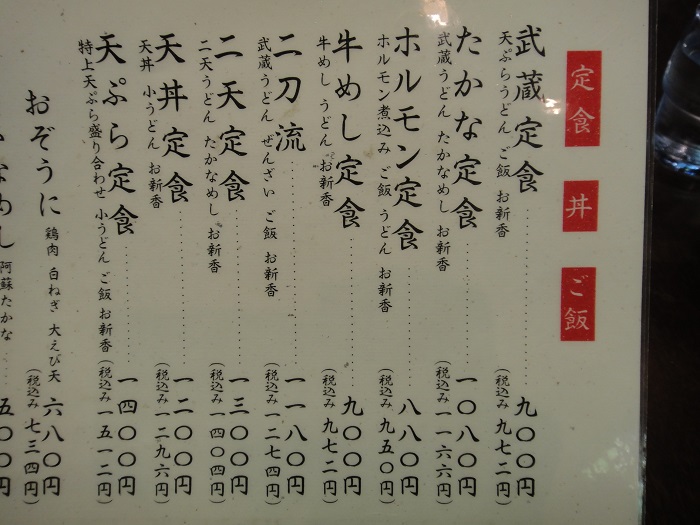 定食
丼
ご飯
武蔵定食 九〇〇円
天ぷらうどん ご飯 お新香 (税込み 九七二円)
たかな定食 一〇八〇円
武蔵うどん たかなめし お新香 (税込み 一一六六円)
ホルモン定食 八八〇円
ホルモン煮込み ご飯 うどん お新香 (税込み 九五〇円)
牛めし定食 九〇〇円
牛めし うどん お新香 (税込み 九七二円)
二刀流 一一八〇円
武蔵うどん ぜんざい ご飯 お新香 (税込み 一二七四円)
二天定食 一三〇〇円
二天うどん たかなめし お新香 (税込み 一四〇四円)
天丼定食 一二〇〇円
天丼 小うどん お新香 (税込み 一二九六円)
天ぷら定食 一四〇〇円
特上天ぷら盛り合わせ 小うどん ご飯 お新香 (税込み 一五一二円)
おぞうに 鶏肉 白ねぎ 大えび天 六八〇円
(税込み 七三四円)
なめし 阿蘇たかな 五〇〇円